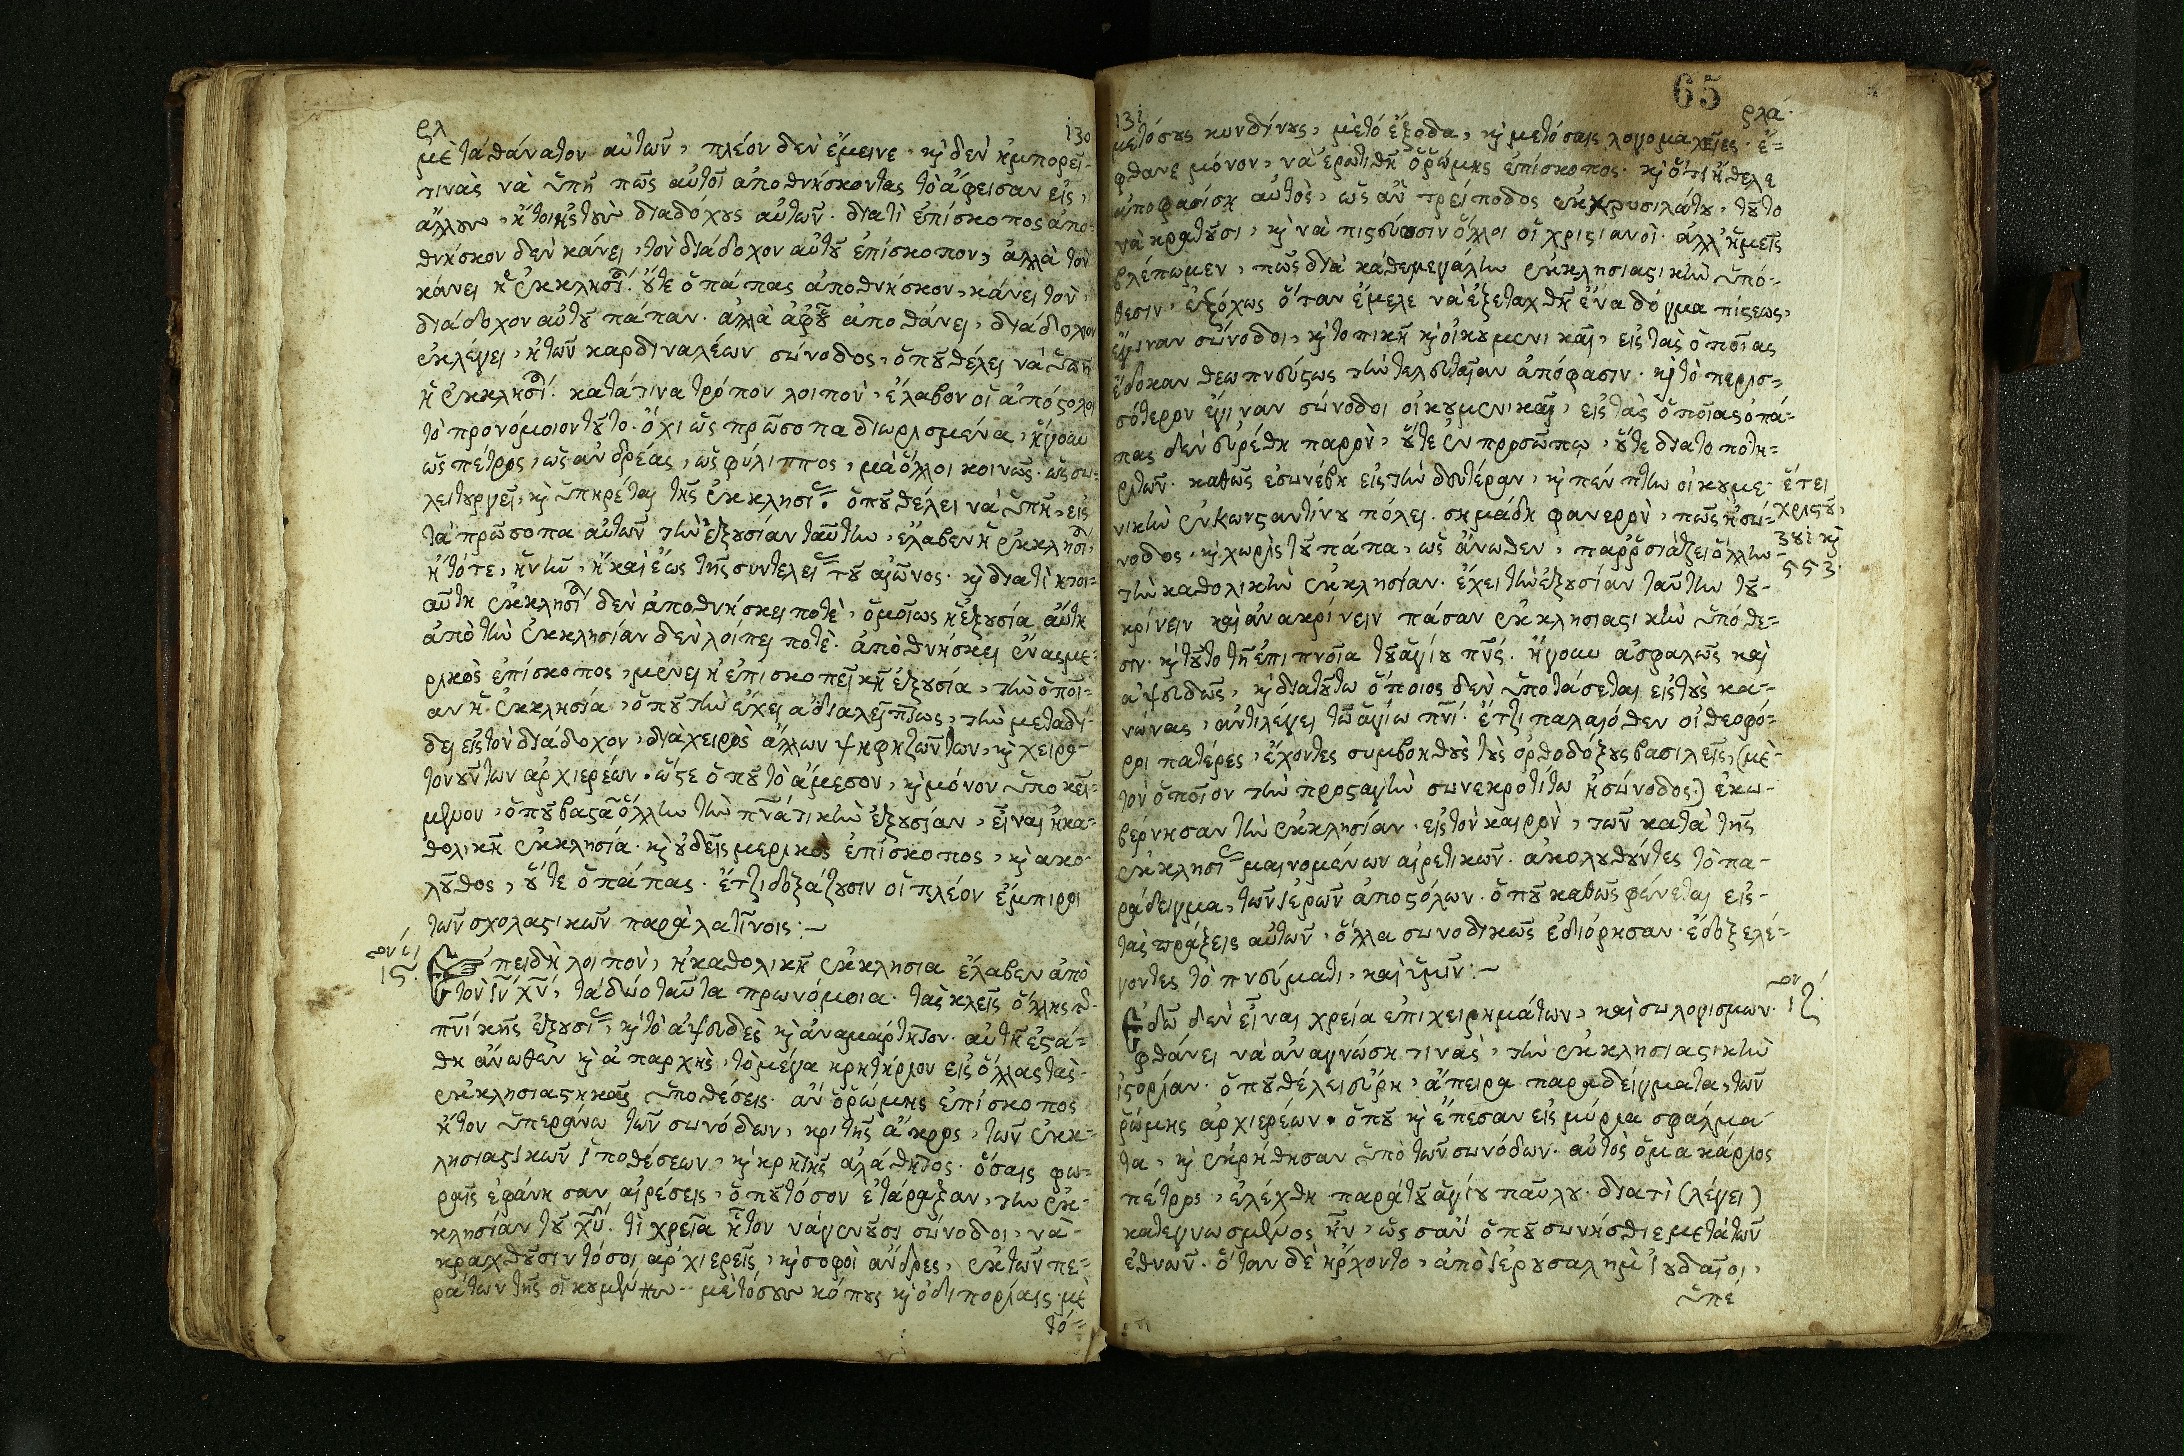 ρλ 130
μὲ τὰ θάνατον αὐτῶν, πλέον δὲν ἔμεινε. κὶ δὲν ἠμπορεῖ
τινὰς νὰ ὑπῇ πῶς αὐτοὶ ἀποθνήσκοντας τὸ ἄφεισαν εἰς
διαδόχους αὐτῶν. διατὶ ἐπίσκοπος ἀπο-
θνήσκον δὲν κάνει, τὸν διάδοχον αὐτοῦ ἐπίσκοπον, ἀλλὰ τὸν
κάνει ἡ ἐκκλησί. οὔτε ὁ πάπας ἀποθνήσκον, κάνει τὸν
διάδοχον αὐτοῦ πάπαν. ἀλλὰ ἀφοῦ ἀποθάνει, διάδοχον
ἐκλέγει, ἡ τῶν καρδιναλέων σύνοδος, ὁποῦ θέλει νὰ ὑπῇ
ἡ ἐκκλησί. κατὰ τινα τρόπον λοιπὸν, ἔλαβον οἱ ἀπόστολοι
τὸ προνόμοιον τοῦτο. ὄχι ὡς πρῶσοπα διωρισμένα, ἤγουν
ὡς πέτρος, ὡς ἀνδρέας, ὡς φύλιππος, μὰ ὅλλοι κοινῶς. ὡς συ-
λειτουργεῖ, κὶ ὑπηρέται τῆς ἐκκλησί. ὁποῦ θέλει νὰ ὑπῇ, εἰς
τὰ πρῶσοπα αὐτῶν τὴν ἐξουσίαν ταύτην, ἔλαβεν ἡ ἐκκλησί,
ἢ τότε, ἢ νῦν, ἢ καὶ ἕως τῆς συντελεί τοῦ αἰῶνος. κὶ διατὶ
αὕτη ἐκκλησί δὲν ἀποθνήσκει ποτὲ, ὁμοίως ἡ ἐξουσία αὕτη
ἀπὸ τὴν ἐκκλησίαν δὲν λοίπει ποτὲ. ἀποθνήσκει ἕνας με-
ρικὸς ἐπίσκοπος, μένει ἡ ἐπισκοπεικὴ ἐξουσία, τὴν ὁποί-
αν ἡ ἐκκλησία, ὁποῦ τὴν ἔχει ἀδιαλείπτως, τὴν μεταδί-
δει εἰς τὸν διάδοχον, διὰ χειρὸς ἄλλων ψηφηζώντων, κὶ χειρο-
τονούντων ἀρχιερέων. ὥστε ὁποῦ τὸ ἄμεσον, κὶ μόνον ὑποκεί-
μενον, ὁποῦ βαστᾶ ὅλλην τὴν πνατικὴν ἐξουσίαν, εἶναι ἡ κα-
θολικὴ ἐκκλησία. κὶ οὐδεὶς μερικὸς ἐπίσκοπος, κὶ ἀκο-
λοῦθος, οὔτε ὁ πάπας. ἔτζι δοξάζουσιν οἱ πλέον ἔμπιροι
τῶν σχολαστικῶν παρὰ λατίνοις:~
ιϛ. Ἐπειδὴ λοιπὸν, ἡ καθολικὴ ἐκκλησια ἔλαβεν ἀπὸ
τὸν ἰν χν, τὰ δύο ταῦτα πρωνόμοια. τὰς κλεῖς ὅλλης τ
πνίκης ἐξουσί, κὶ τὸ ἀψευδὲς κὶ ἀναμάρτητον. αὐτὴ ἐστά-
θη ἄνωθεν κὶ ἀπαρχῆς, τὸ μέγα κρητήριον εἰς ὅλλας τὰς
ἐκκλησιαστηκὰς ὑποθέσεις. ἂν ὁ ῥώμης ἐπίσκοπος
ἦτον ὑπεράνω τῶν συνόδων, κριτὴς ἄκρος, τῶν ἐκκ-
λησιαστικῶν ὑποθέσεων, κὶ κρητὴς ἀλάθητος. ὅσαις φω-
ραῖς ἐφάνησαν αἱρέσεις, ὁποῦ τόσον ἐτάραξαν, την ἐκ-
κλησίαν τοῦ χῦ. τὶ χρεία ἦτον νὰ γενοῦσι σύνοδοι, νὰ
κραχθοῦσιν τόσοι ἀρχιερεῖς, κὶ σοφοὶ ἄνδρες, ἐκ τῶν πε-
ράτων τῆς οἰκουμένην. μὲ τόσους κόπους κὶ ὁδιπορίαις. μὲ
τό-
131 65 ρλα.
μετόσους κινδίνους, μὲ τό ἔξοδα, κὶ μετόσαις λογομαχεῖες. ἔ-
φθανε μόνον, νὰ ἐρωτιθῇ ὁ ῥώμης ἐπίσκοπος. κὶ ὅτι ἤθελε
ἀποφασίση αὐτὸς, ὡς ἂν τρείποδος ἐκ χρυσιλάτου, τοῦτο
νὰ κρατοῦσι, κὶ νὰ πιστεύσιν ὅλλοι οἱ χριστιανοὶ. ἀλλ' ἡμεῖς
βλέπωμεν, πῶς διὰ κάθε μεγάλην ἐκκλησιαστικὴν ὑπό-
θεσιν, ἐξόχως ὅταν ἔμελε νὰ ἐξεταχθῇ ἕνα δόγμα πίστεως,
ἔγιναν σύνοδοι, κὶ τοπικὴ κὶ οἰκουμενικαὶ, εἰς τὰς ὁποίας
ἔδοκαν θεωπνεύστως τὴν τελευταίαν ἀπόφασιν. κὶ τὸ περισ-
σότερον ἔγιναν σύνοδοι οἰκουμενικαὶ, εἰς τὰς ὁποίας ὁ πά-
πας δὲν εὑρέθη παρὸν, οὔτε ἐν προσώπῳ, οὔτε διατο ποτη-
ριτῶν. καθὼς ἐσυνέβη εἰς τὴν δευτέραν, κὶ πέμπτην οἰκουμε-
νικὴν ἐν κωνσταντίνου πόλει. σημάδη φανερὸν, πῶς ἡ συ-
νοδος, κὶ χωρὶς τοῦ πάπα, ὡς ἄνωθεν, παρῥησιάζει ὅλλην
τὴν καθολικὴν ἐκκλησίαν. ἔχει τὴν ἐξουσίαν ταύτην τοῦ
κρίνειν καὶ ἀνακρίνειν πάσαν ἐκκλησιαστικὴν ὑπόθε-
σιν. κὶ τοῦτο τῇ ἐπιπνοίᾳ τοῦ ἁγίου πνς. ἤγουν ἀσφαλῶς καὶ
ἀψευδῶς, κὶ διατοῦτο ὅποιος δὲν ὑποτάσεται εἰς τοὺς κα-
νώνας, ἀντιλέγει τῷ ἁγίῳ πνι. ἔτζι παλαιόθεν οἱ θεοφό-
ροι πατέρες, ἔχοντες συμβοηθοὺς τοὺς ὀρθοδόξους βασιλεῖς, (μὲ
τὸν ὁποῖον τὴν προσταγὴν συνεκροτίτο ἡ σύνοδος.) ἐκυ-
βέρνησαν τὴν ἐκκλησίαν. εἰς τὸν καιρὸν, τῶν κατὰ τῆς
ἐκκλησί μαινομένων αἱρετικῶν. ἀκολουθοῦντες τὸ πα-
ράδειγμα, τῶν ἱερῶν ἀποστόλων. ὁποῦ καθὼς φένεται εἰς
ταὶς πράξεις αὐτῶν. ὅλλα συνοδικῶς ἐδιόρησαν. ἔδοξε λέ-
γοντες τὸ πνεύματι, καὶ ἡμῶν:~
ἔτει
χριστοῦ,
381 κὶ
553.
ιζ. Ἐδῶ δὲν εἶναι χρεία ἐπιχειρημάτων, καὶ συλογισμων.
φθάνει νὰ ἀναγνώση τινὰς, τὴν ἐκκλησιαστικὴν
ἱστορίαν. ὁποῦ θέλει εὕρη, ἄπειρα παραδείγματα, τῶν
ῥώμης ἀρχιερέων. ὁποῦ κὶ ἔπεσαν εἰς μύρια σφάλμα
τα, κὶ ἐκρήθησαν ὑπὸ τῶν συνόδων. αὐτὸς ὁ μακάριος
πέτρος, ἐλέχθη παρὰ τοῦ ἁγίου παύλου. διατὶ (λέγει)
κατεγνωσμένος ἦν, ὡς σαν ὁποῦ συνήσθιε μετὰ τῶν
ἐθνων. ὅταν δὲ ἤρχοντο, ἀπὸ ἱερουσαλὴμ ἰουδαῖοι,
ὑπε